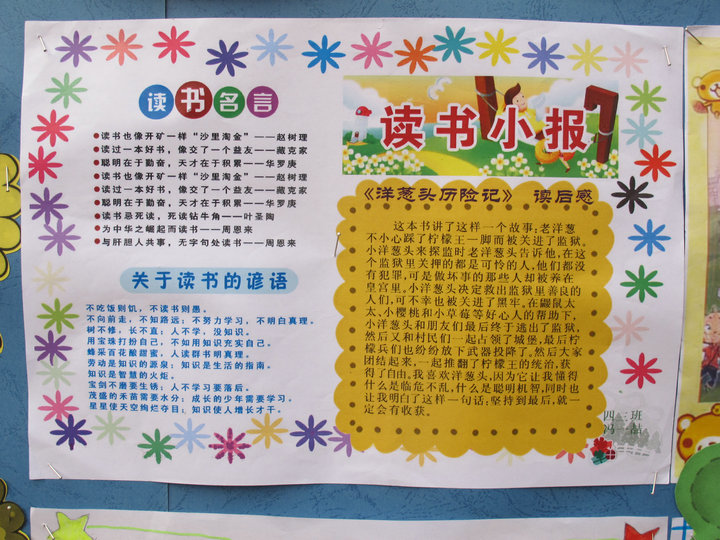 读书名言
●读书也像开矿一样“沙里淘金”——赵树理
●读过一本好书，像交了一个益友——藏克家
●聪明在于勤奋，天才在于积累——华罗庚
●读书也像开矿一样“沙里淘金”——赵树理
●读过一本好书，像交了一个益友——藏克家
●聪明在于勤奋，天才在于积累——华罗庚
●读书忌死读，死读钻牛角——叶圣陶
●为中华之崛起而读书——周恩来
●与肝胆人共事，无字句处读书——周恩来
关于读书的谚语
不吃饭则饥，不读书则愚。
不向前走，不知路远；不努力学习，不明白真理。
树不修，长不直；人不学，没知识。
用宝珠打扮自己，不如用知识充实自己。
蜂采百花酿甜蜜，人读群书明真理。
劳动是知识的源泉；知识是生活的指南。
知识是智慧的火炬。
宝剑不磨要生锈；人不学习要落后。
茂盛的禾苗需要水分；成长的少年需要学习。
星星使天空绚烂夺目；知识使人增长才干。
读书小报
《洋葱头历险记》 读后感
这本书讲了这样一个故事：老洋葱
不小心踩了柠檬王一脚而被关进了监狱。
小洋葱头来探监时老洋葱头告诉他，在这
个监狱里关押的都是可怜的人，他们都没
有犯罪，可是做坏事的那些人却被养在
皇宫里，小洋葱头决定救出监狱里善良的
人们，可不幸也被关进了黑牢。在鼹鼠太
太、小樱桃和小草莓等好心人的帮助下，
小洋葱头和朋友们最后终于逃出了监狱，
然后又和村民们一起占领了城堡，最后柠
檬兵们也纷纷放下武器投降了，然后大家
团结起来，一起推翻了柠檬王的统治，获
得了自由。我喜欢洋葱头，因为它让我懂得
什么是临危不乱，什么是聪明机智，同时也
让我明白了这样一句话：坚持到最后，就一
定会有收获。
四三班
冯一喆